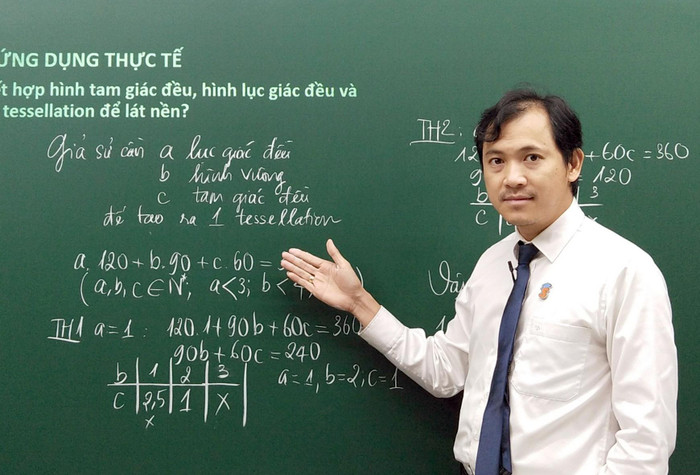 ỨNG DỤNG THỰC TẾ
ết hợp hình tam giác đều, hình lục giác đều và
tessellation để lát nền?
Giả sử cần a lục giác đều
b hình vuông
c tam giác đều
để tạo ra 1 tessellation
a.120 + b.90 + c.60 =
(a,b,c ∈ N*; a<3; b<4,
TH1 a=1: 120.1+90b+60c=360
90b+60c=240
b | 1 | 2 | 3
c | 2,5 | 1 | x
x
a=1, b=2, c=1
TH2:
12 +60c=360
9 120
b 3
c x